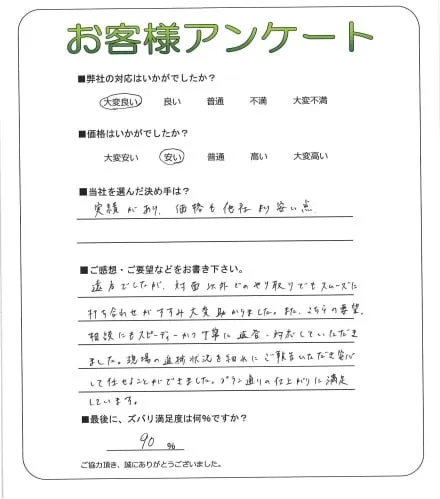 お客様アンケート
■弊社の対応はいかがでしたか？
大変良い 良い 普通 不満 大変不満
■価格はいかがでしたか？
大変安い 安い 普通 高い 大変高い
■当社を選んだ決め手は？
実績があり、価格も他社より安い点
■ご感想・ご要望などをお書き下さい。
遠方でしたが、対面以外でのやり取りでもスムーズに
打ち合わせがすすみ大変助かりました。また、こちらの要望、
相談にもスピーディーかつ丁寧に返答・対応していただき
ました。現場の進捗状況を細めにご報告いただき安心
して任せることができました。プラン通りの仕上がりに満足
しています。
■最後に、ズバリ満足度は何％ですか？
90 ％
ご協力頂き、誠にありがとうございました。